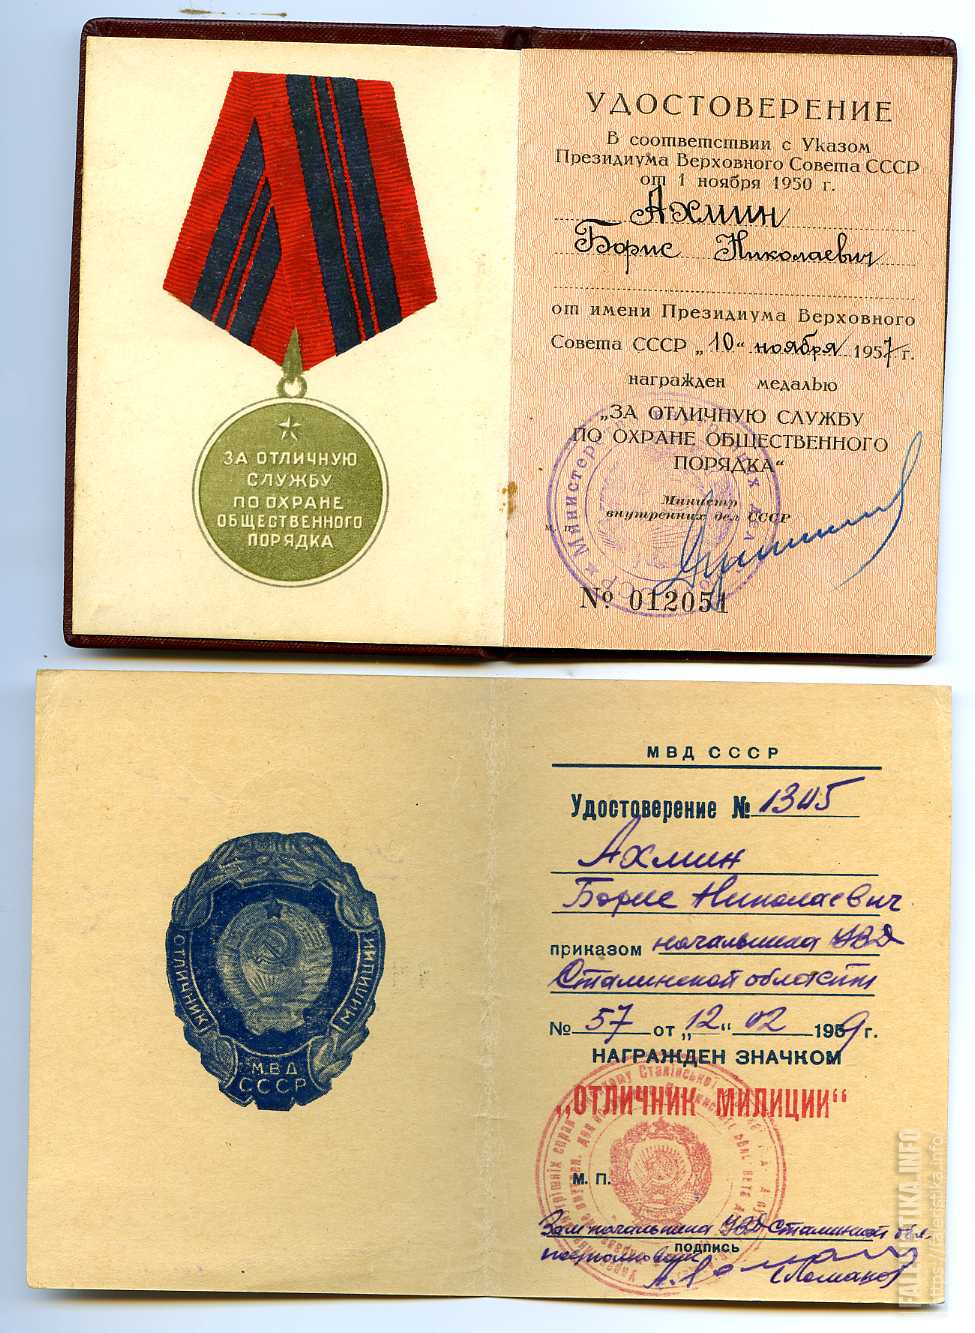 УДОСТОВЕРЕНИЕ
В соответствии с Указом
Президиума Верховного Совета СССР
от 1 ноября 1950 г.
Ахмин
Борис Николаевич
от имени Президиума Верховного
Совета СССР „10" ноября 1957 г.
награжден медалью
„ЗА ОТЛИЧНУЮ СЛУЖБУ
ПО ОХРАНЕ ОБЩЕСТВЕННОГО
ПОРЯДКА"
Министр
внутренних дел СССР
М. П.
№ 012051
ЗА ОТЛИЧНУЮ
СЛУЖБУ
ПО ОХРАНЕ
ОБЩЕСТВЕННОГО
ПОРЯДКА
МВД СССР
Удостоверение №
Ахмин
Борис Николаевич
приказом начальника УВД
Сталинской области
№ 57 от „12" 02 1959 г.
НАГРАЖДЕН ЗНАЧКОМ
„ОТЛИЧНИК МИЛИЦИИ"
М. П.
Зам начальника УВД Сталинской обл.
подпись
полковник
ОТЛИЧНИК
МИЛИЦИИ
МВД
СССР
FALERISTIKA.INFO
https://faleristika.info/